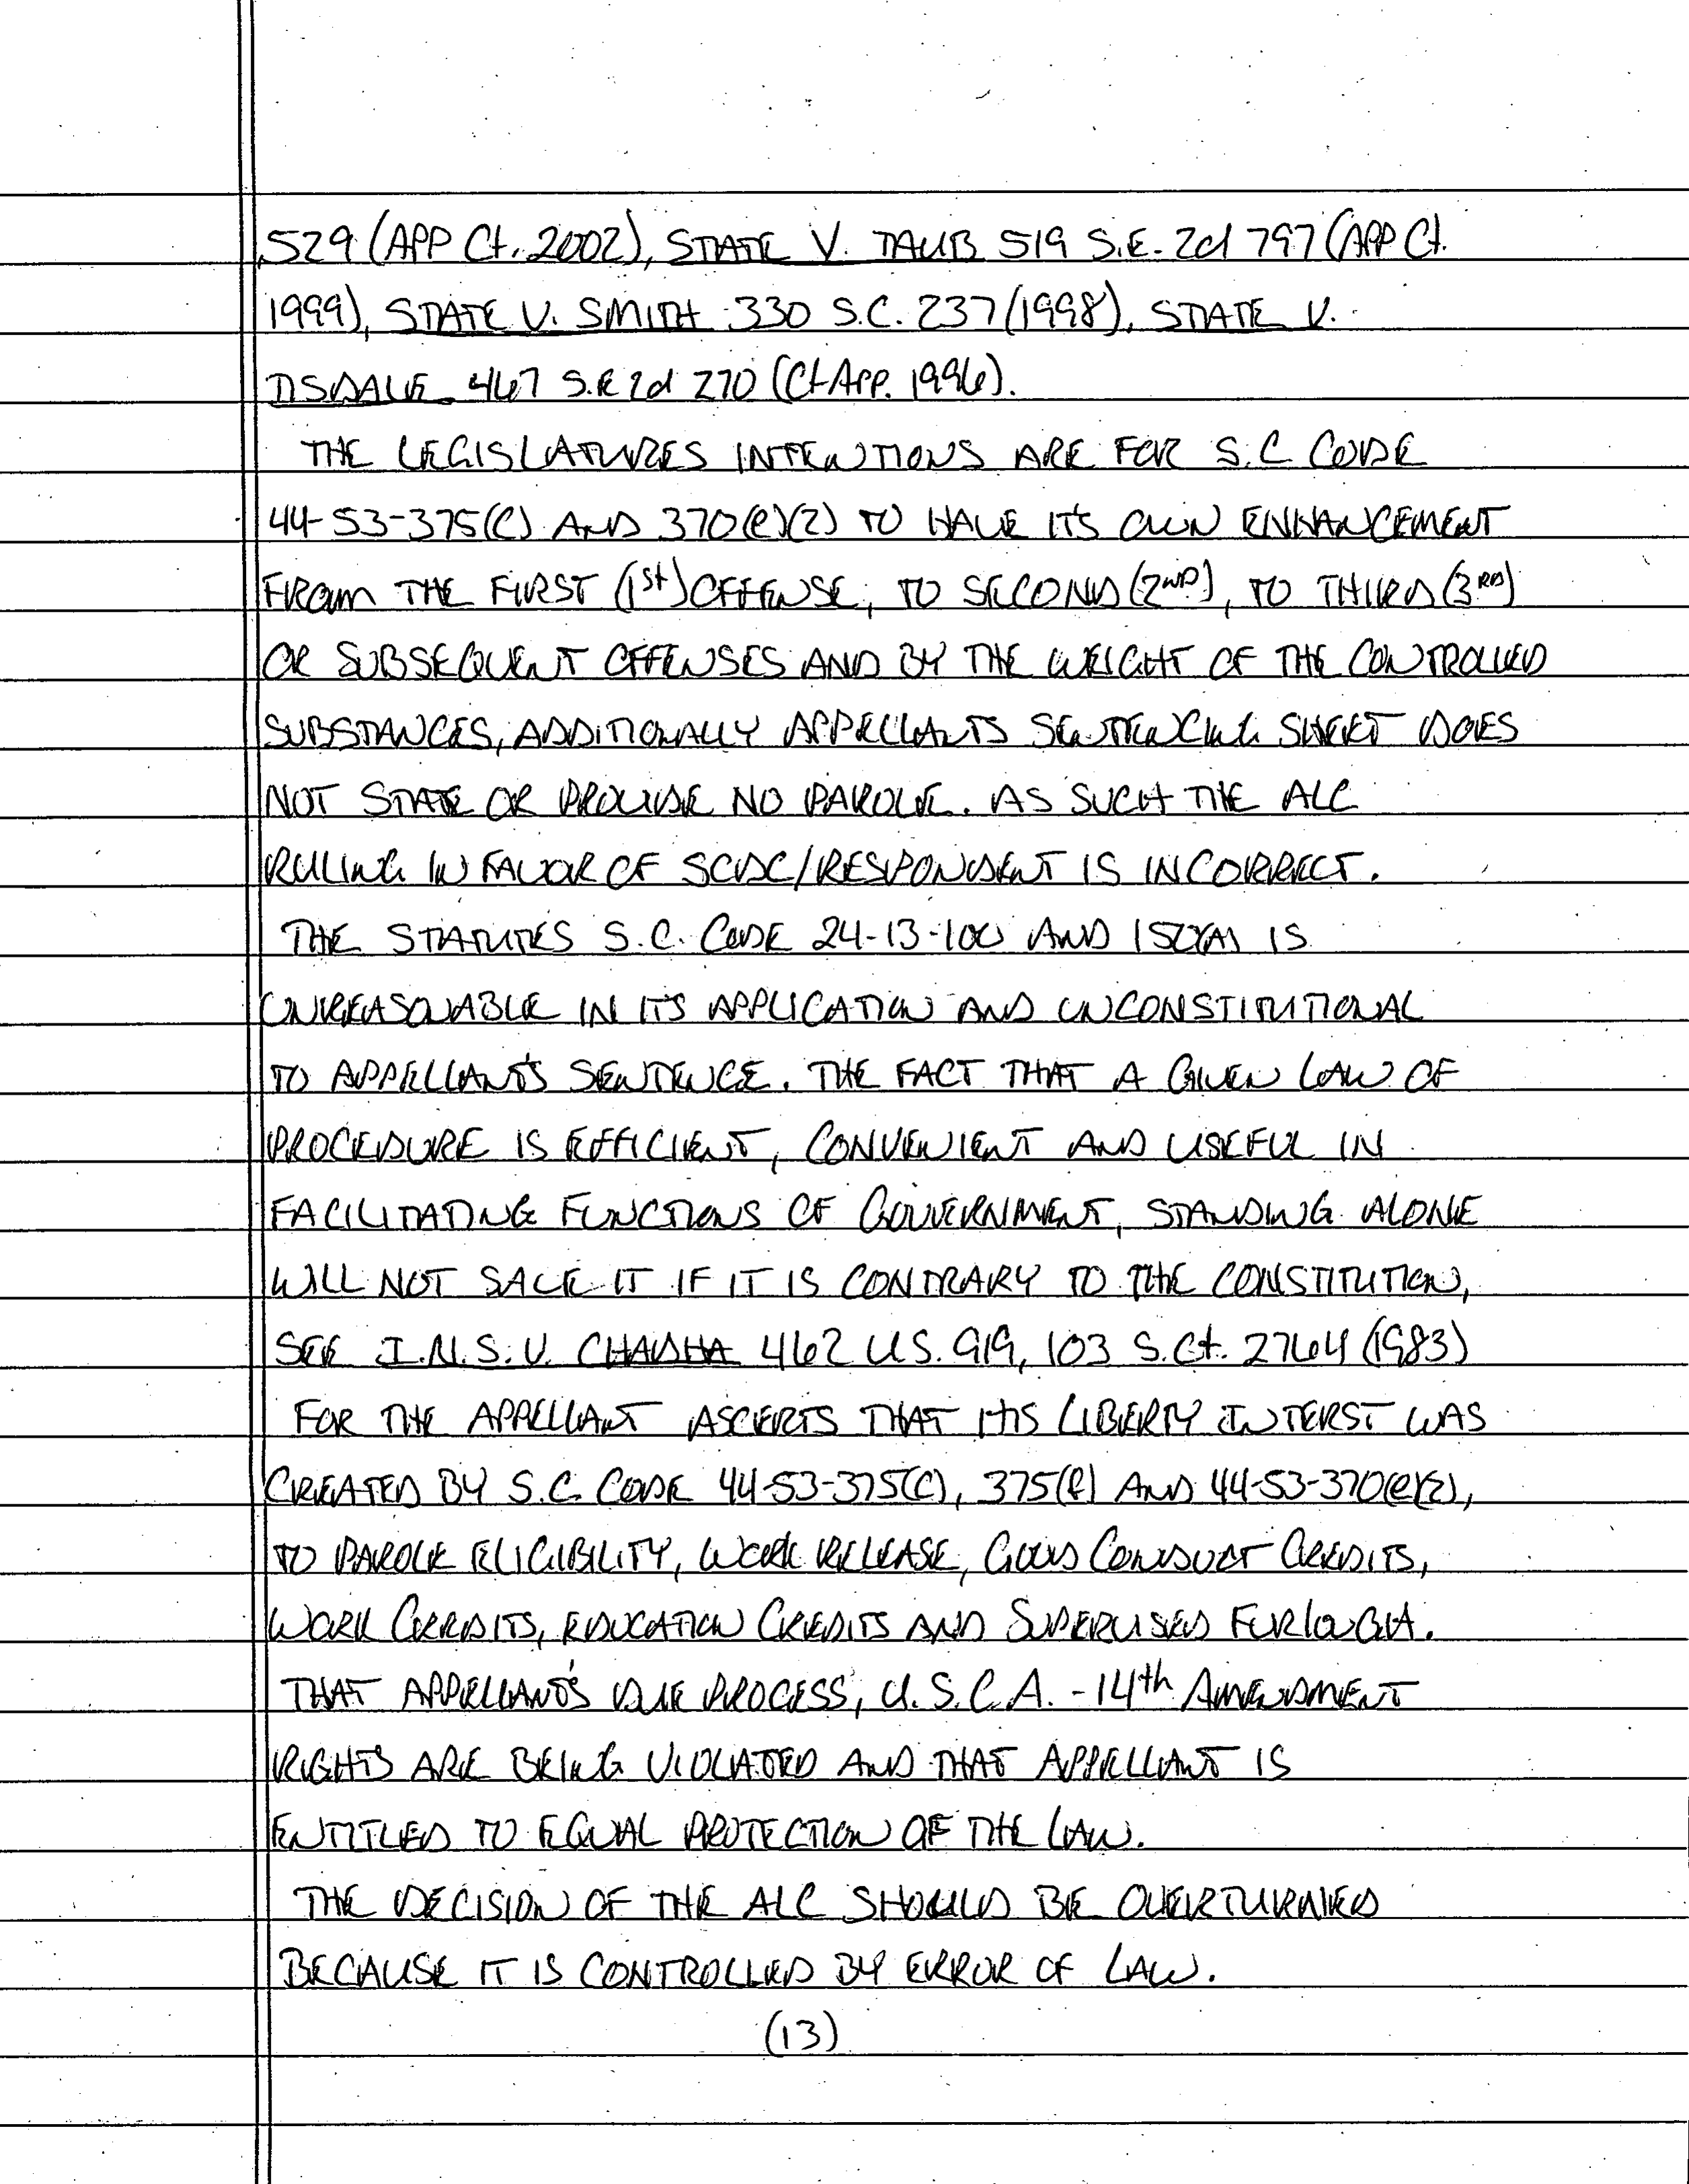 529 (APP Ct. 2002), STATE V. TAUB 519 S.E. 2d 797 (APP Ct.
1999), STATE V. SMITH 330 S.C. 237 (1998), STATE V.
TISDALE 467 S.E 2d 270 (Ct App. 1996).
THE LEGISLATURES INTENTIONS ARE FOR S.C CODE
44-53-375(C) AND 370(e)(2) TO HAVE ITS OWN ENHANCEMENT
FROM THE FIRST (1st) OFFENSE, TO SECOND (2ND), TO THIRD (3RD)
OR SUBSEQUENT OFFENSES AND BY THE WEIGHT OF THE CONTROLLED
SUBSTANCES, ADDITIONALLY APPELLANTS SENTENCING SHEET DOES
NOT STATE OR PROVIDE NO PAROLE. AS SUCH THE ALC
RULING IN FAVOR OF SCDC/RESPONDENT IS INCORRECT.
THE STATUTES S.C. CODE 24-13-100 AND 150(A) IS
UNREASONABLE IN ITS APPLICATION AND UNCONSTITUTIONAL
TO APPELLANT'S SENTENCE. THE FACT THAT A GIVEN LAW OF
PROCEDURE IS EFFICIENT, CONVENIENT AND USEFUL IN
FACILITATING FUNCTIONS OF GOUVERNMENT, STANDING ALONE
WILL NOT SAVE IT IF IT IS CONTRARY TO THE CONSTITUTION,
SEE I.N.S. V. CHADHA 462 U.S. 919, 103 S.Ct. 2764 (1983)
FOR THE APPELLANT ASCERTS THAT HIS LIBERTY INTERST WAS
CREATED BY S.C. CODE 44-53-375(C), 375(f) AND 44-53-370(e)(2),
TO PAROLE ELIGIBILITY, WORK RELEASE, GOOD CONDUCT CREDITS,
WORK CREDITS, EDUCATION CREDITS AND SUPERVISED FURLOUGH.
THAT APPELLANT'S DUE PROCESS, U.S.C.A. - 14th AMENDMENT
RIGHTS ARE BEING VIOLATED AND THAT APPELLANT IS
ENTITLED TO EQUAL PROTECTION OF THE LAW.
THE DECISION OF THE ALC SHOULD BE OVERTURNED
BECAUSE IT IS CONTROLLED BY ERROR OF LAW.
(13)